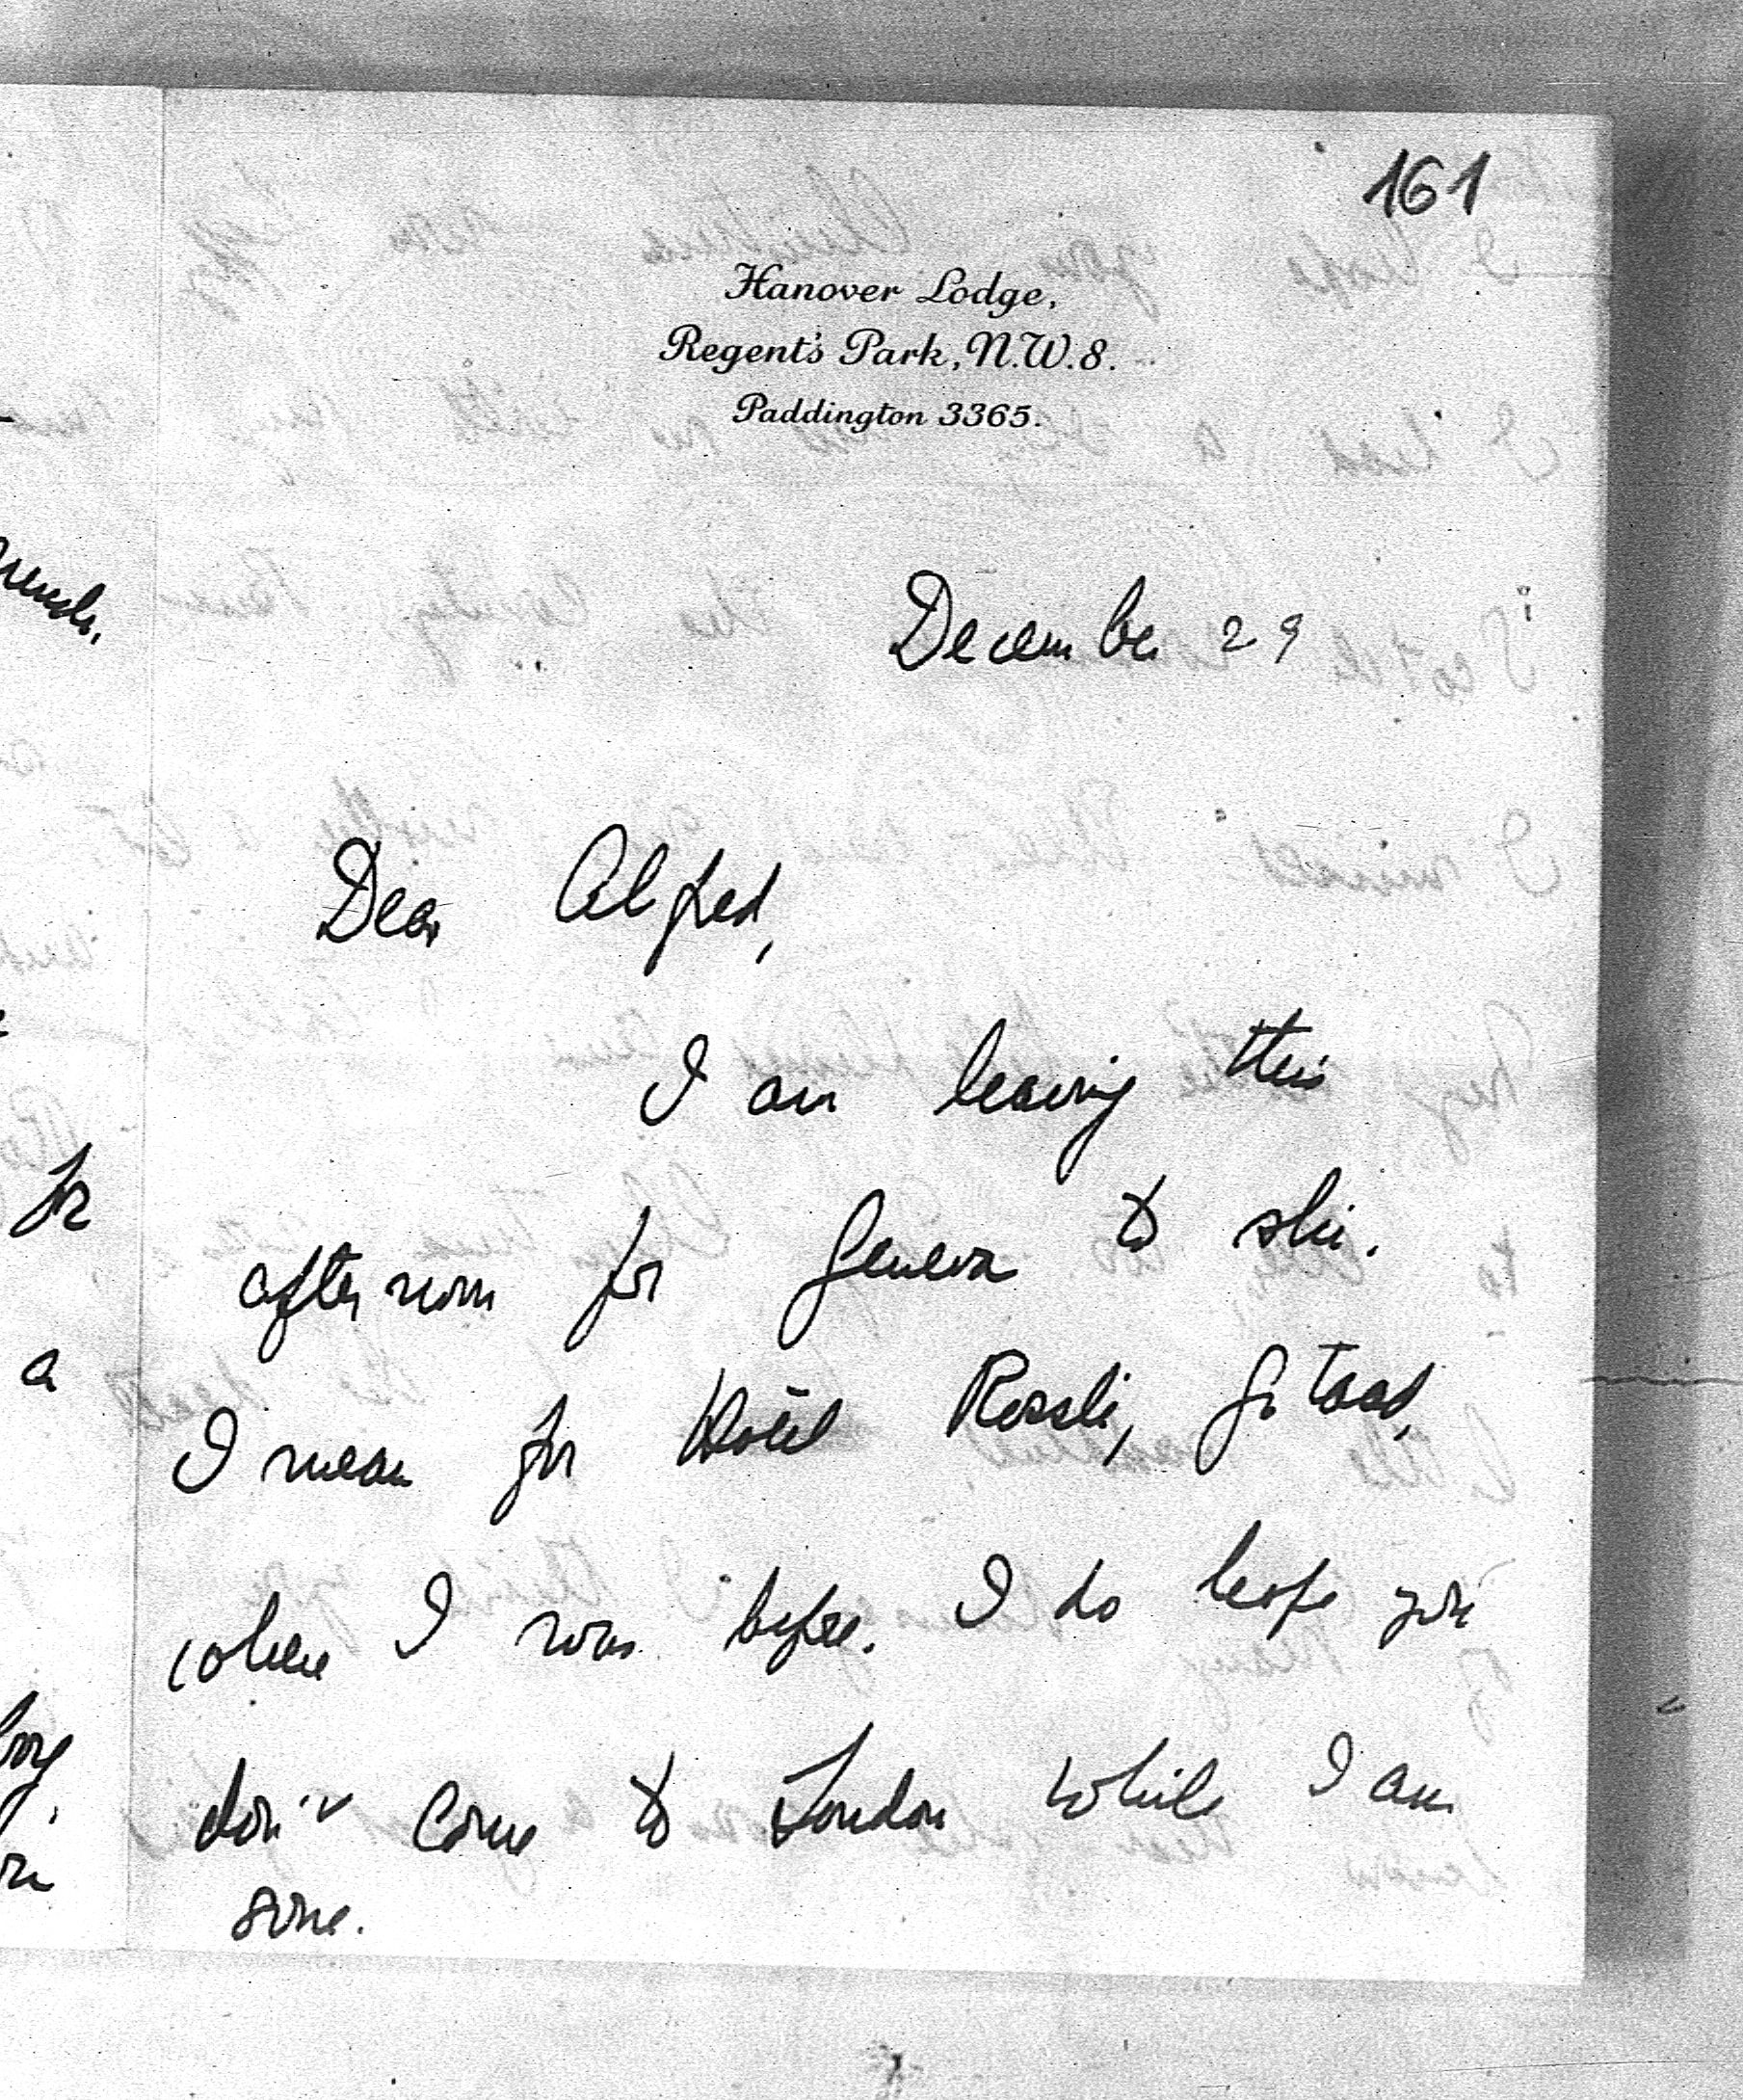 161
Hanover Lodge,
Regent's Park, N.W.8.
Paddington 3365.
December 29
Dear Alfred,
I am leaving this
afternoon for Geneva to ski.
I mean for Hôtel Rossli, Gstaad,
where I was before. I do hope you
don't come to London while I am
gone.
for
a